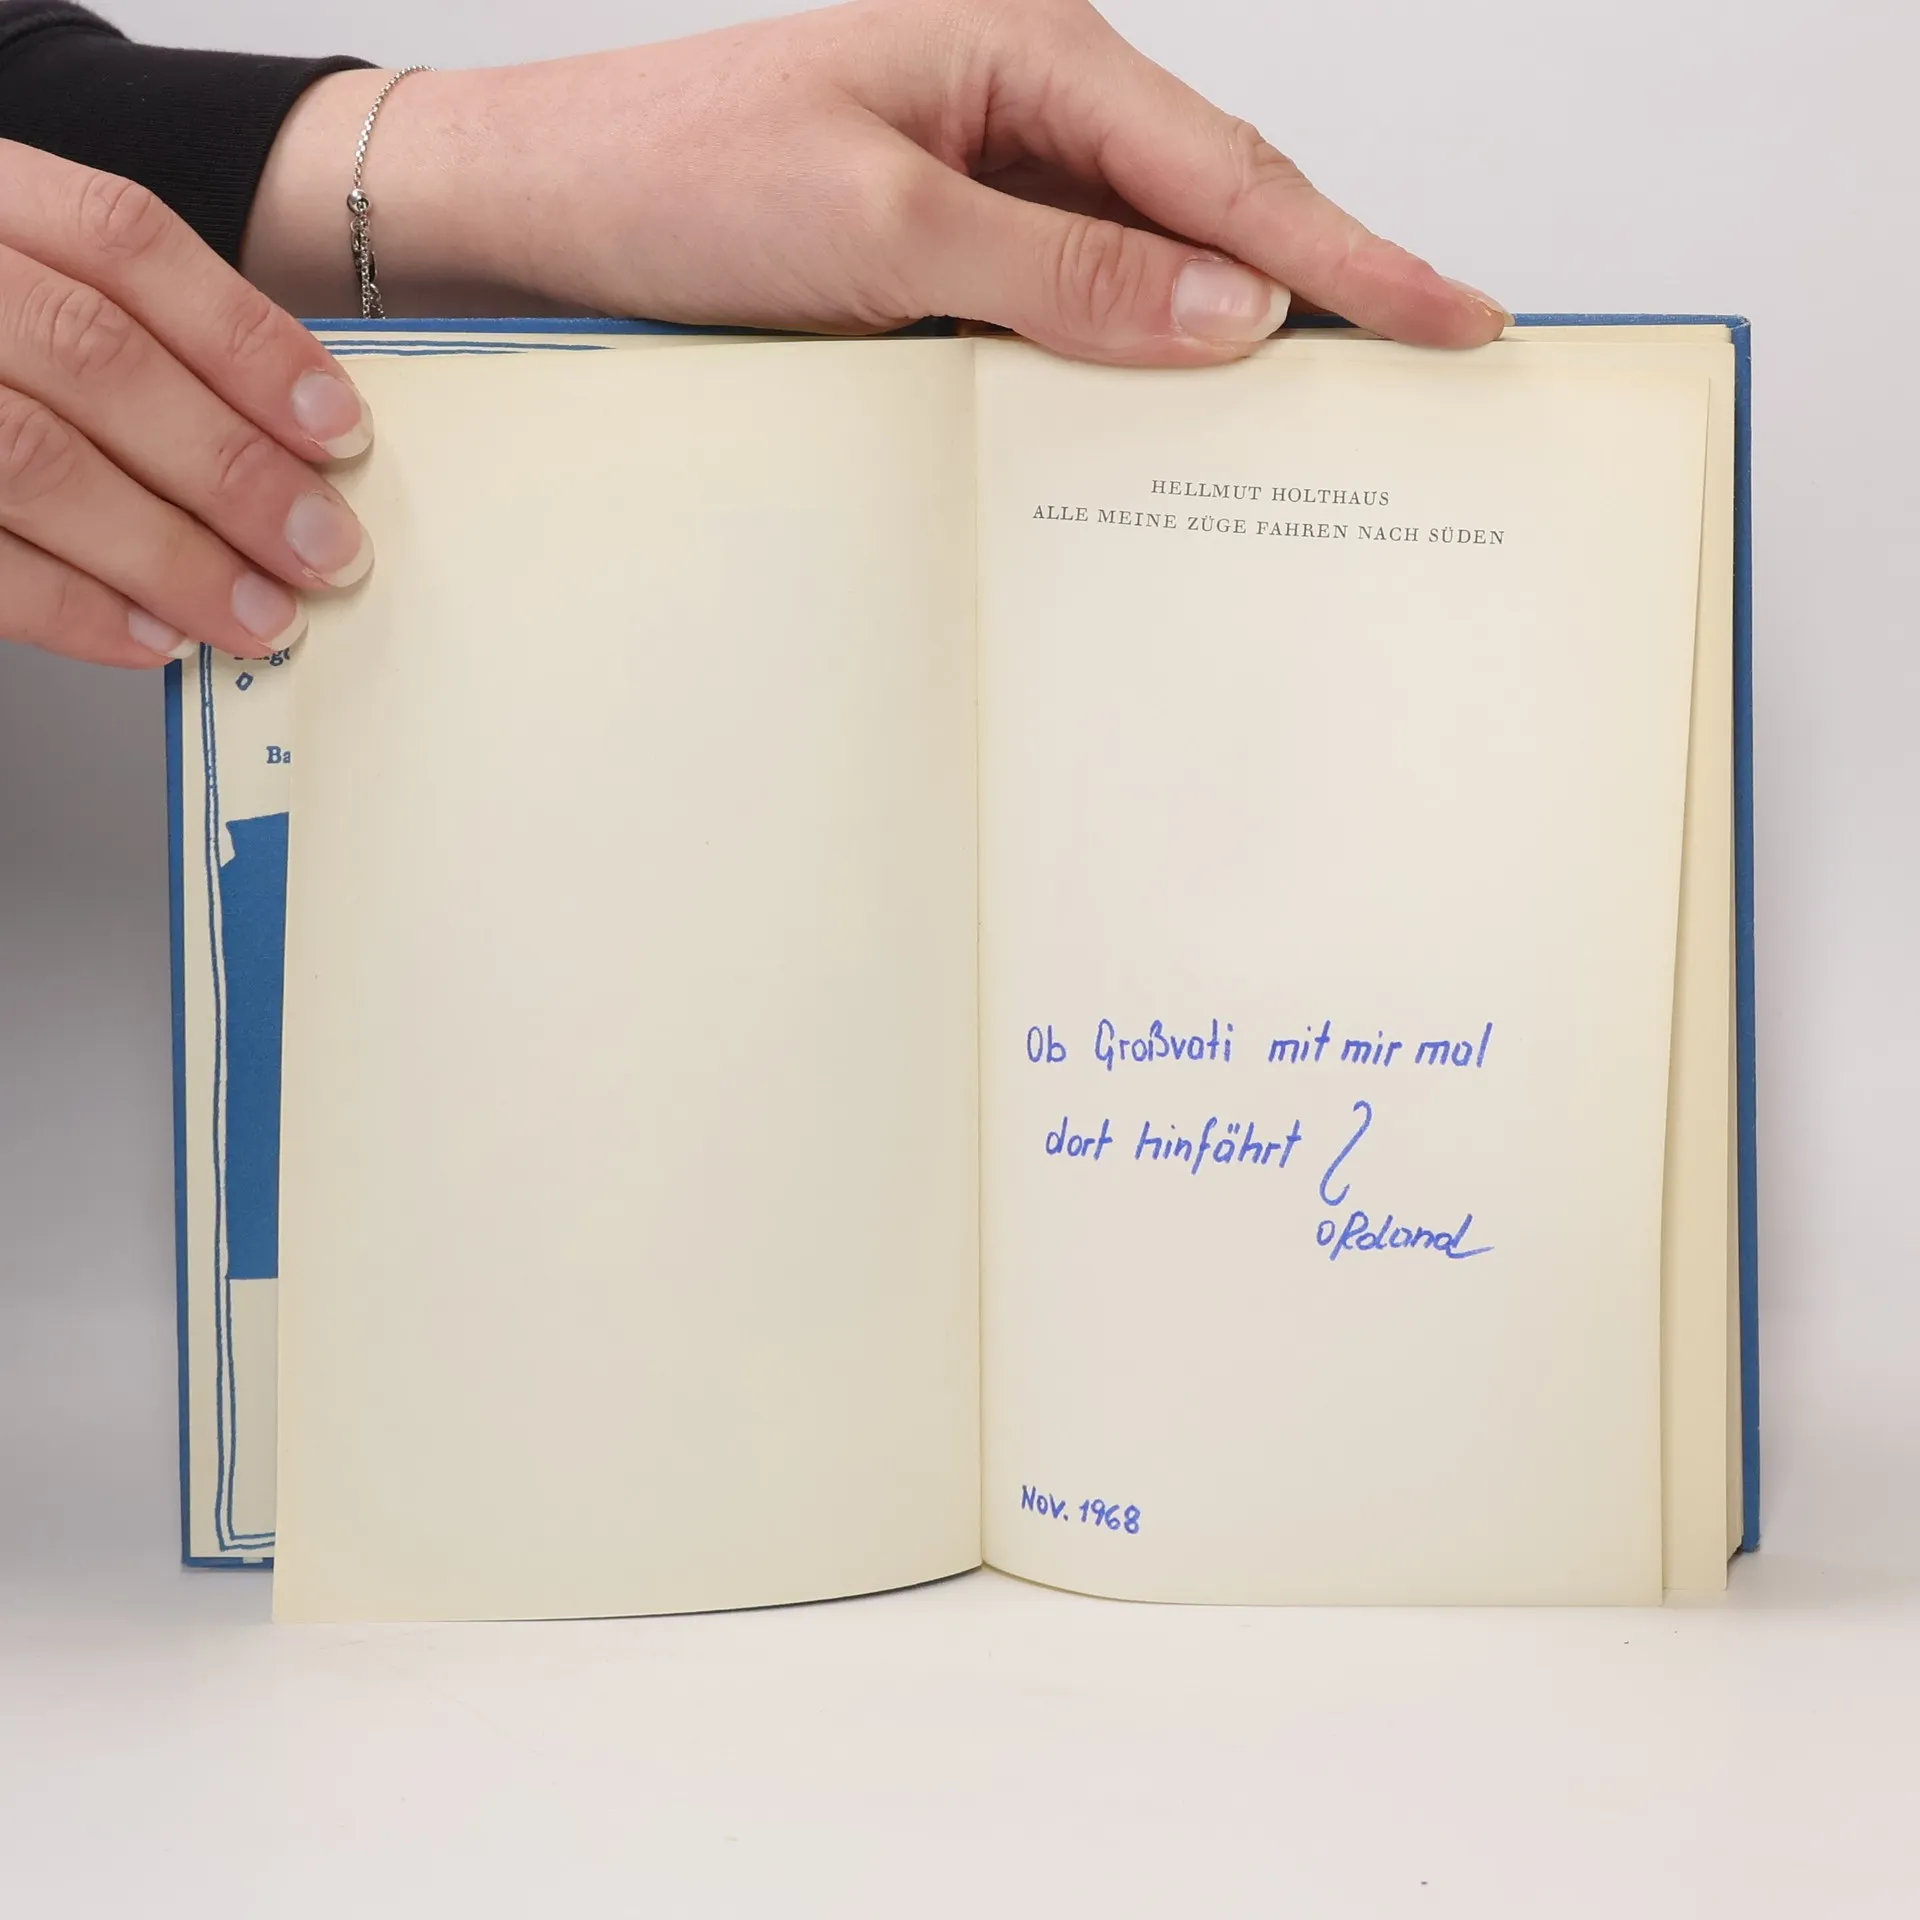 HELLMUT HOLTHAUS
ALLE MEINE ZÜGE FAHREN NACH SÜDEN
Ob Großvati mit mir mal
dort hinfährt ?
Roland
Nov. 1968
Ba